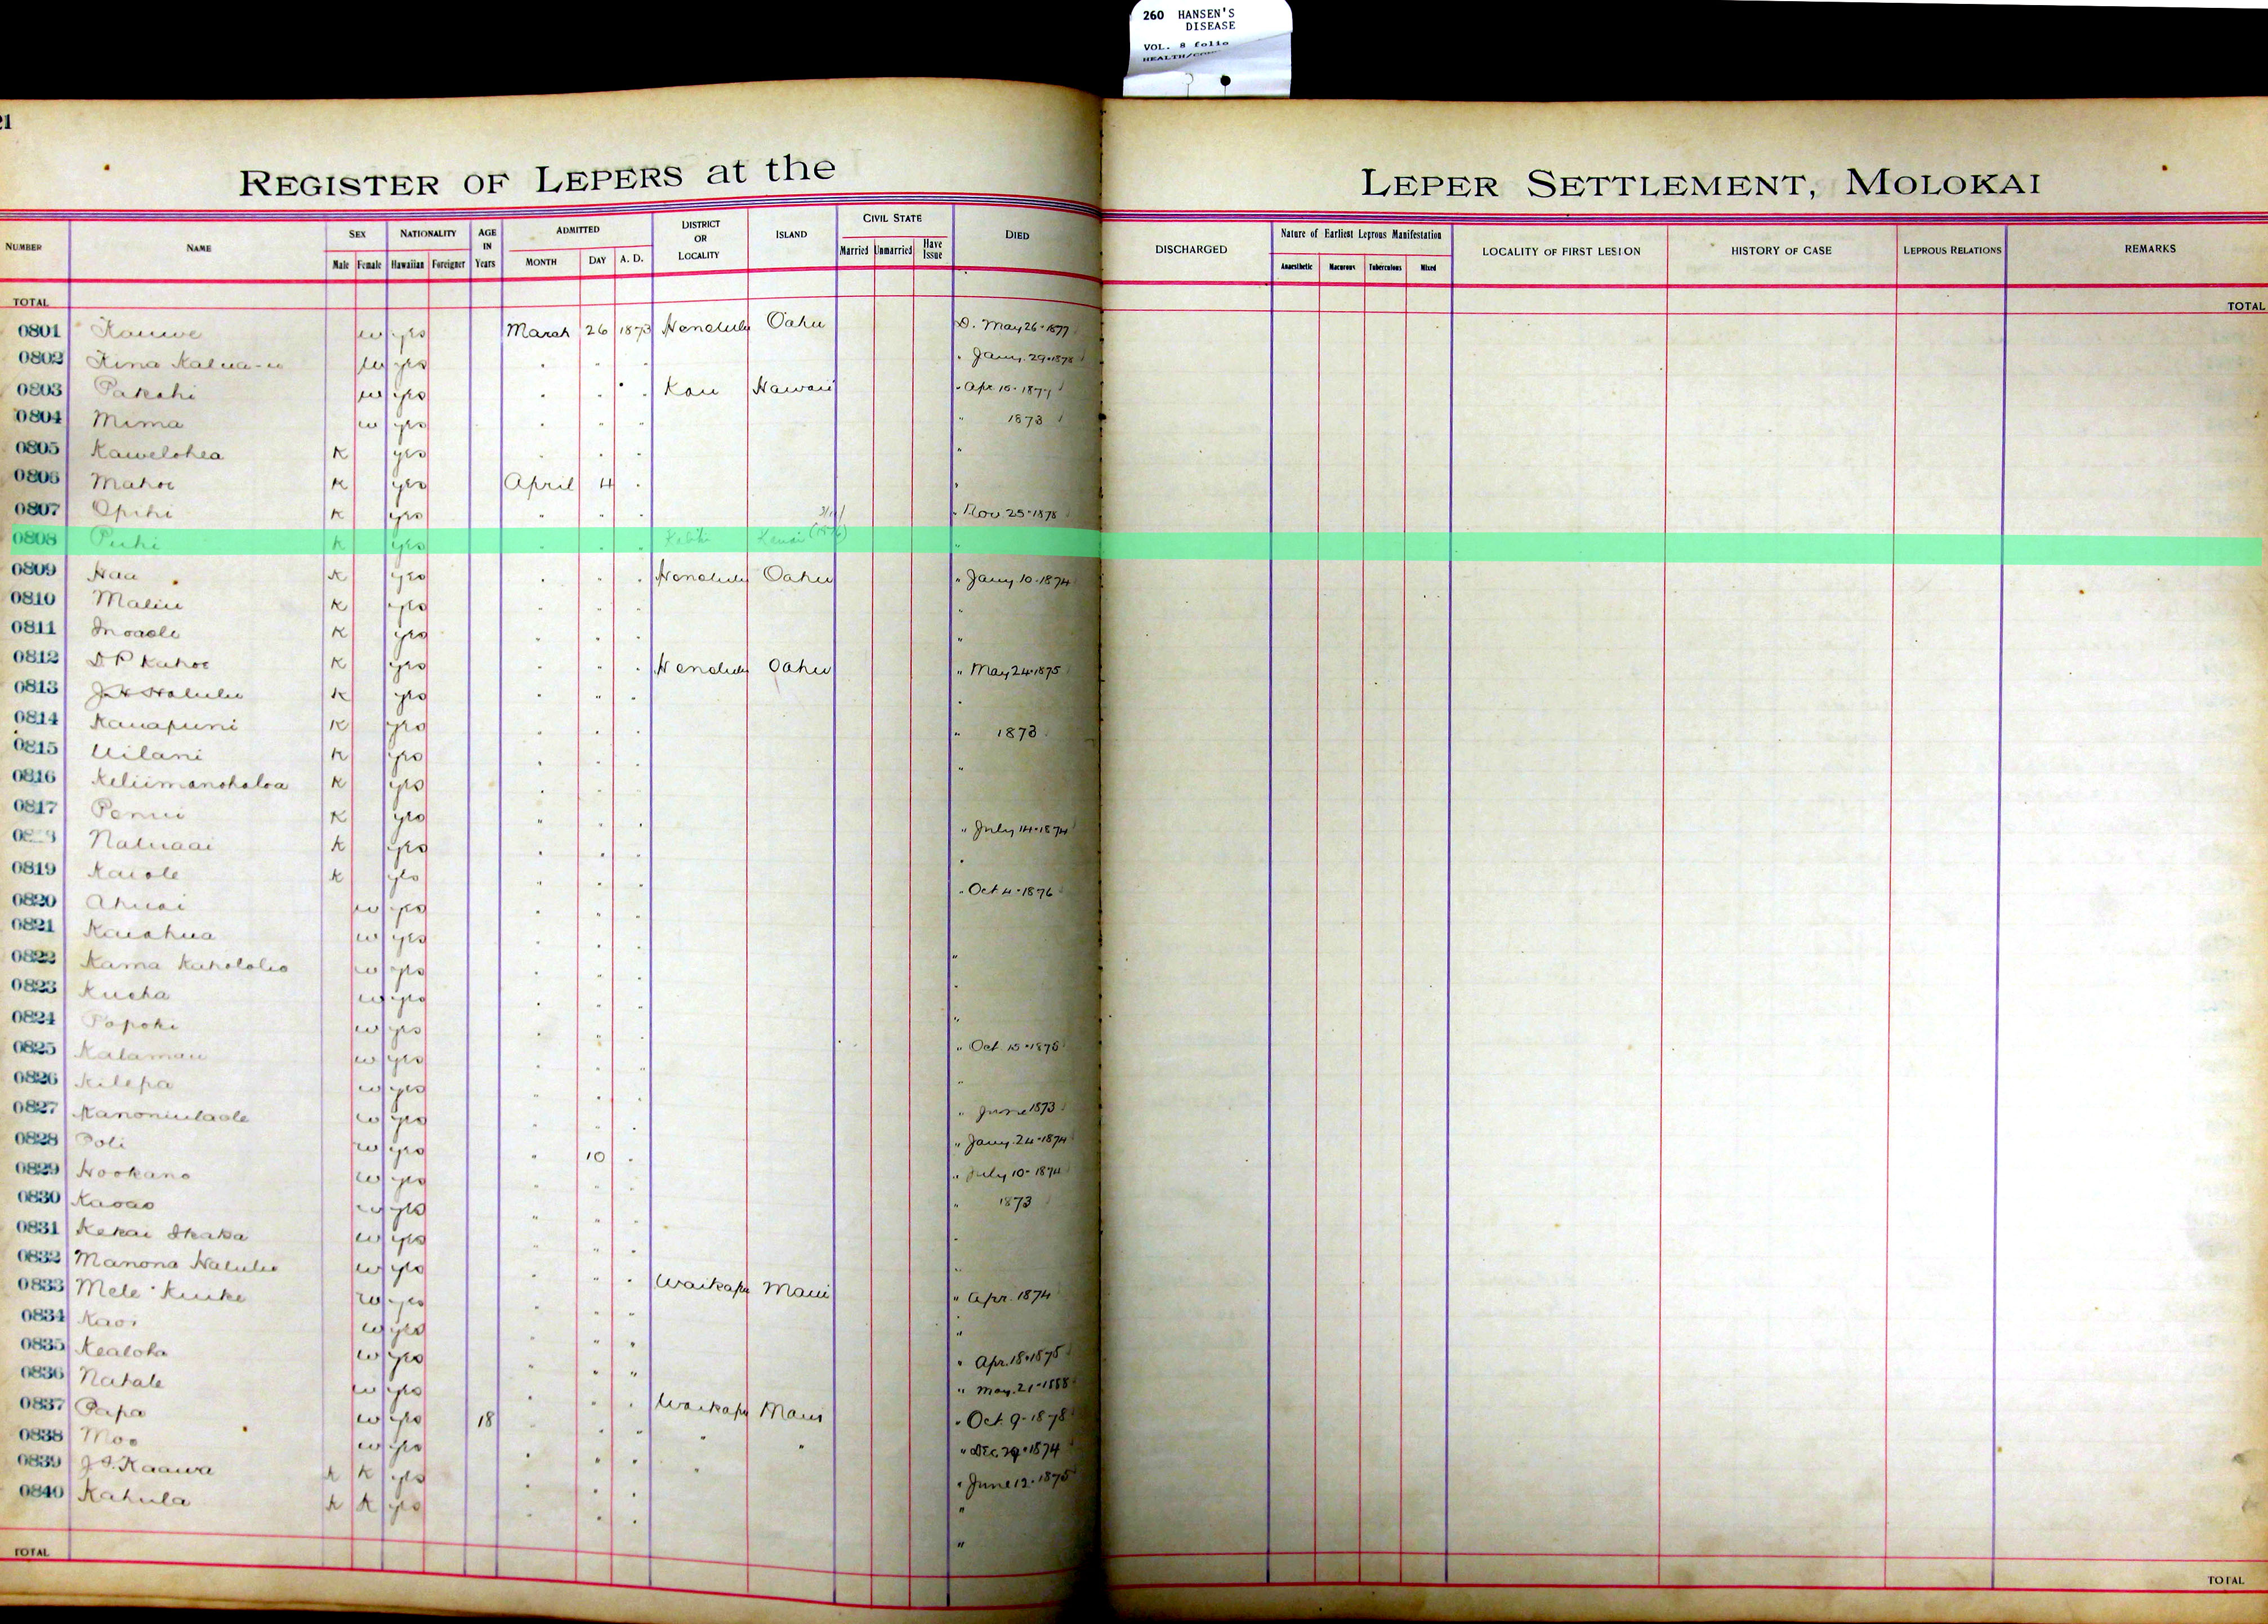 260 HANSEN'S
DISEASE
VOL. 8 folio
21
REGISTER OF LEPERS at the LEPER SETTLEMENT, MOLOKAI
NUMBER NAME SEX NATIONALITY AGE IN Years ADMITTED DISTRICT OR LOCALITY ISLAND CIVIL STATE DIED DISCHARGED Nature of Earliest Leprous Manifestation LOCALITY OF FIRST LESION HISTORY OF CASE LEPROUS RELATIONS REMARKS
Male Female Hawaiian Foreigner MONTH DAY A. D. Married Unmarried Have Issue Anaesthetic Macurous Tuberculous Mixed
TOTAL TOTAL
0801 Kauwe w yes March 26 1873 Honolulu Oahu D. May 26-1877
0802 Kina Kalua-u w yes " " " " Jany. 29-1878
0803 Pakahi w yes " " " Kau Hawaii " Apr 10-1877
0804 Mima w yes " " " " 1873
0805 Kawelohea K yes " " " "
0806 Mahoe K yes April 4 " "
0807 Opihi K yes " " " " Nov 25-1878
0808 Puhi K yes " " " Kauai "
0809 Haa K yes " " " Honolulu Oahu " Jany 10-1874
0810 Maliu K yes " " " "
0811 Inoaole K yes " " " "
0812 D P Kahoe K yes " " " Honolulu Oahu " May 24-1875
0813 J H Halulu K yes " " " "
0814 Kauapuni K yes " " " " 1873
0815 Uilani K yes " " " "
0816 Keliimanohaloa K yes " " "
0817 Penui K yes " " " " July 14-1874
Naluaai K yes " " " "
0819 Kaiole K yes " " " " Oct 4-1876
0820 Ahuai w yes " " "
0821 Kaiahua w yes " " " "
0822 Kama Kahololio w yes " " " "
0823 Kueha w yes " " " "
0824 Popoki w yes " " " " Oct. 15-1878
0825 Kalamau w yes " " " "
0826 Kilepa w yes " " " " June 1873
0827 Kanoniulaole w yes " " " " Jany. 24-1874
0828 Poli w yes " 10 " " July 10-1874
0829 Hookano w yes " " " " 1873
0830 Kaoao w yes " " " "
0831 Kekai Ikaka w yes " " " "
0832 Manona Halulu w yes " " " Waikapu Maui " Apr. 1874
0833 Mele Kuike w yes " " " "
0834 Kaoi w yes " " " " Apr. 18-1875
0835 Kealoha w yes " " " " May. 21-1888
0836 Nahale w yes " " " Waikapu Maui " Oct. 9-1878
0837 Papa w yes 18 " " " " " " Dec 29-1874
0838 Moo w yes " " " " " June 12-1875
0839 J. Kaawa K K yes " " " "
0840 Kahula K K yes " " " "
TOTAL TOTAL